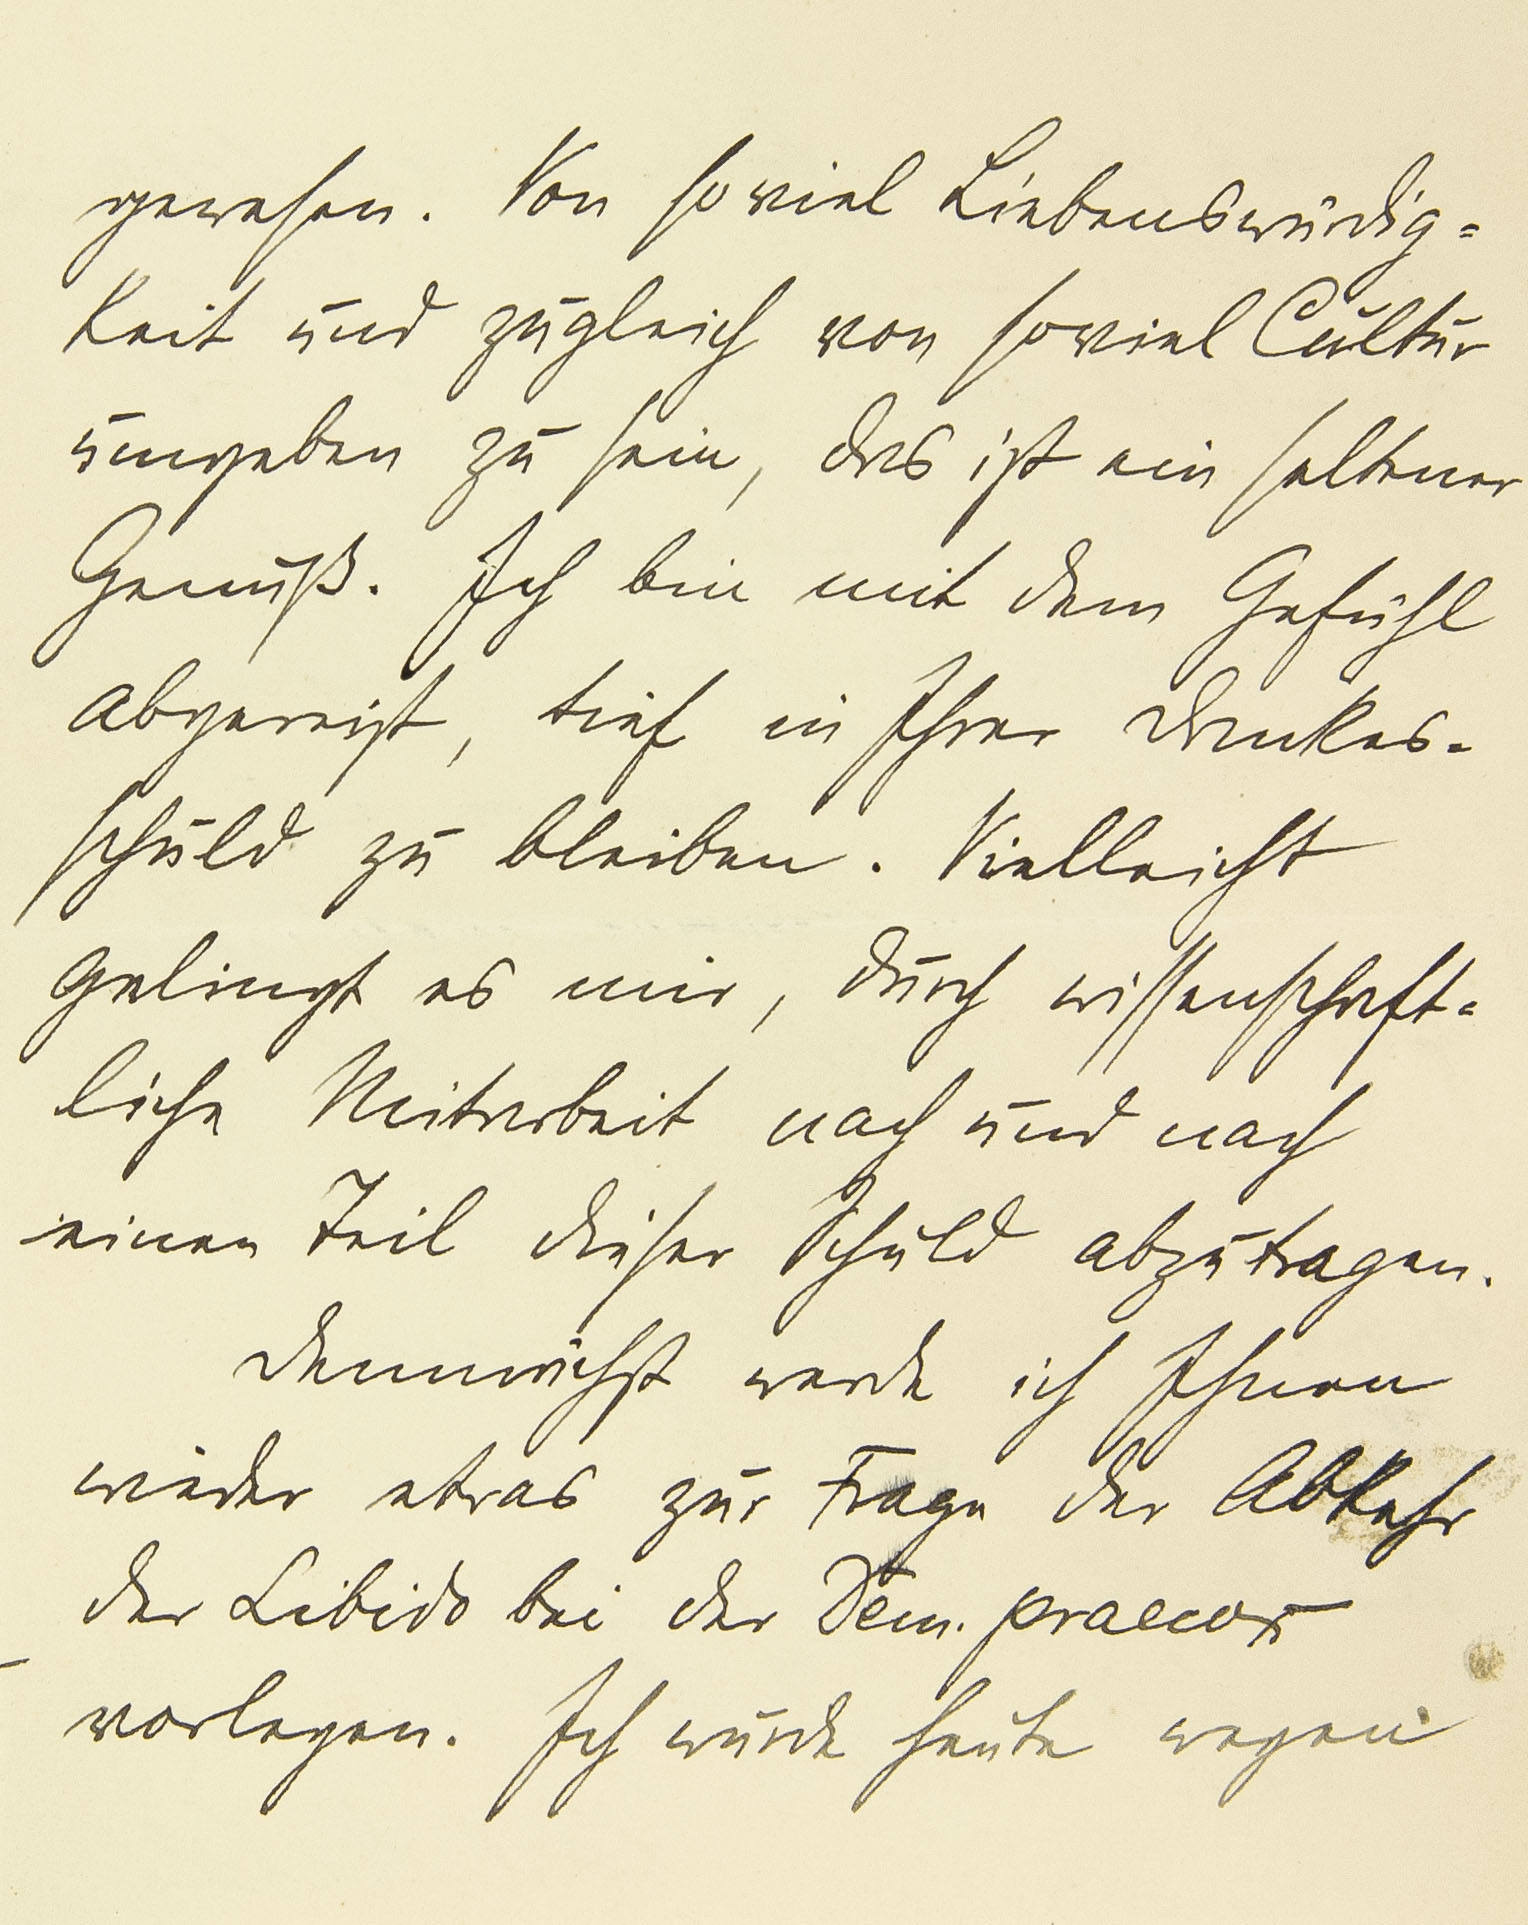 gewesen. Von soviel Liebenswürdig=
keit und zugleich von soviel Cultur
umgeben zu sein, das ist ein seltener
Genuß. Ich bin mit dem Gefühl
abgereist, tief in Ihrer Dankes=
schuld zu bleiben. Vielleicht
gelingt es mir, durch wissenschaft=
liche Mitarbeit nach und nach
einen Teil dieser Schuld abzutragen.
Demnächst werde ich Ihnen
wieder etwas zur Frage der Abkehr
der Libido bei der Dem. praecox
vorlegen. Ich wurde heute wegen